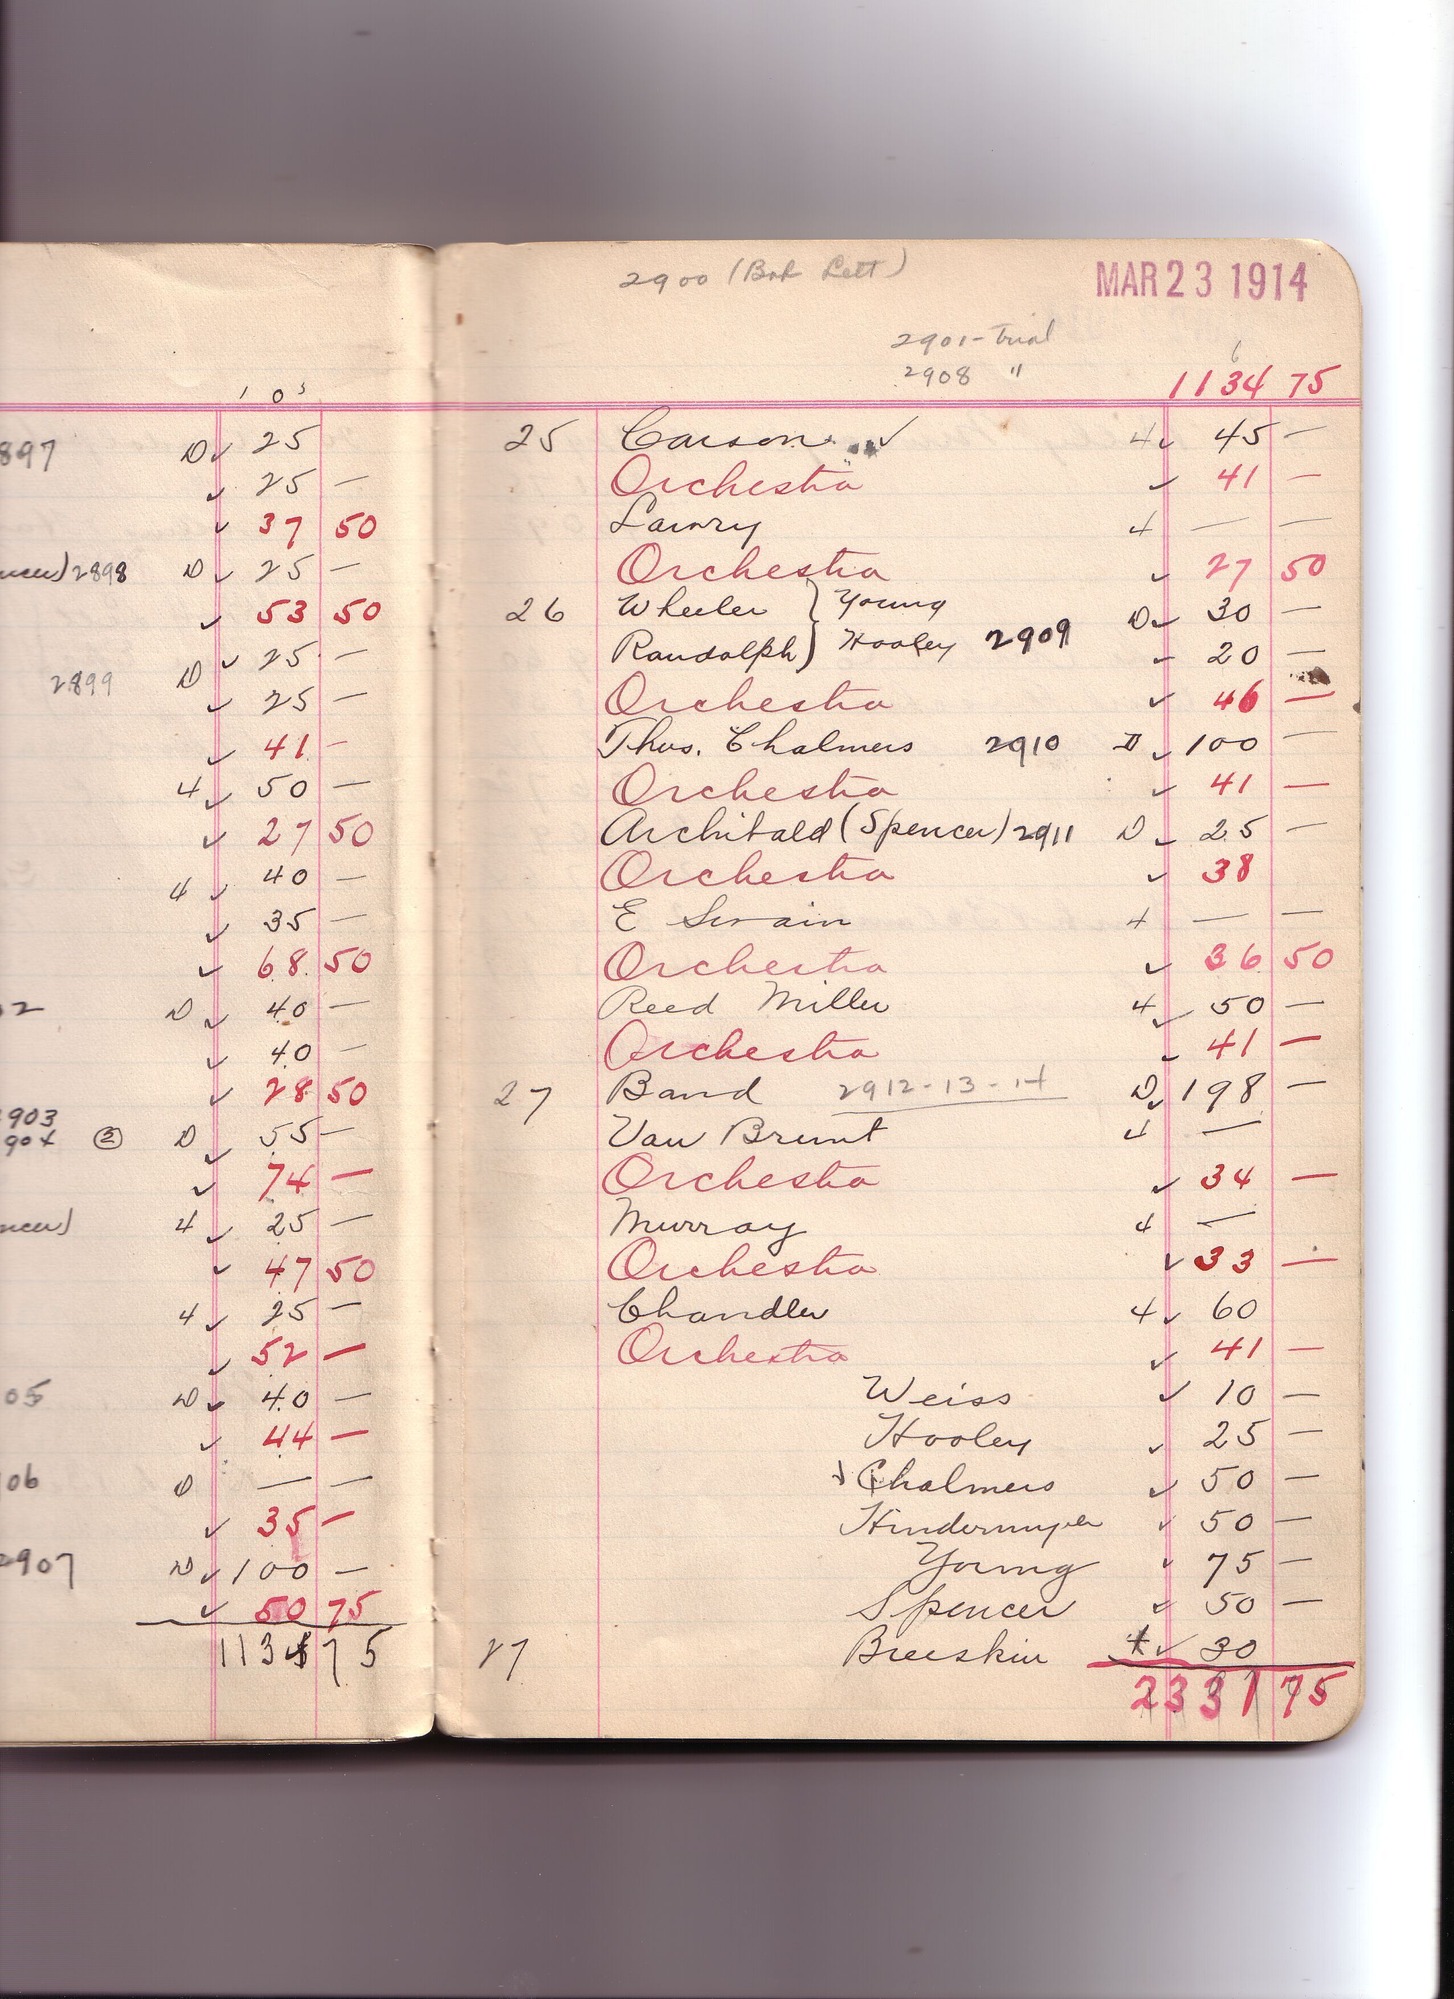 1 0 5
897 D ✓ 25
✓ 25 —
✓ 37 50
ncer) 2898 D ✓ 25 —
✓ 53 50
✓ 25 —
2899 D
✓ 25 —
✓ 41 —
4 ✓ 50 —
✓ 27 50
4 ✓ 40 —
✓ 35 —
✓ 68 50
02 D ✓ 40 —
✓ 40 —
✓ 28 50
2903
904 ② D ✓ 55 —
✓ 74 —
ncer) 4 ✓ 25 —
✓ 47 50
4 ✓ 25 —
✓ 52 —
05 D ✓ 40 —
✓ 44 —
06 D — —
✓ 35 —
2907 D ✓ 100 —
✓ 50 75
1134 75
2900 (Bob Lett)
MAR 23 1914
2901 - Trial
2908 "
6
1134 75
25 Carson ✓ 4 ✓ 45 —
Orchestra ✓ 41 —
Lawry 4 — —
Orchestra ✓ 27 50
26 Wheeler } Young D ✓ 30 —
Randolph } Hooley 2909 ✓ 20 —
Orchestra ✓ 46 —
Thos. Chalmers 2910 D ✓ 100 —
Orchestra ✓ 41 —
Archibald (Spencer) 2911 D ✓ 25 —
Orchestra ✓ 38
E Swain 4 — —
Orchestra ✓ 36 50
Reed Miller 4 ✓ 50 —
Orchestra ✓ 41 —
27 Band 2912-13-14 D ✓ 198 —
Van Brunt 4 —
Orchestra ✓ 34 —
Murray 4 —
Orchestra ✓ 33 —
Chandler 4 ✓ 60
Orchestra ✓ 41 —
Weiss ✓ 10 —
Hooley ✓ 25 —
Chalmers ✓ 50 —
Hindermyer ✓ 50 —
Young ✓ 75 —
Spencer ✓ 50 —
27 Breeskin 4 ✓ 30
2331 75